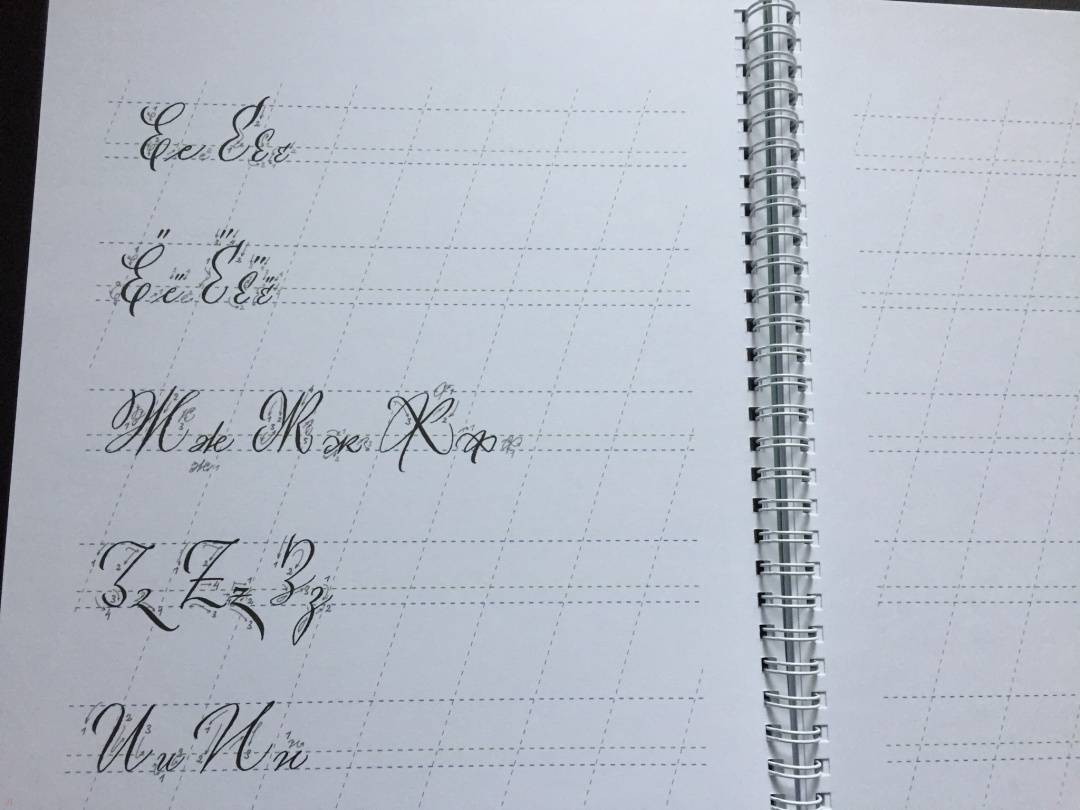 Ее Еее
Ёё Ёёё
Жж Жж Жж
Зз Зз Зз
Ии Ии